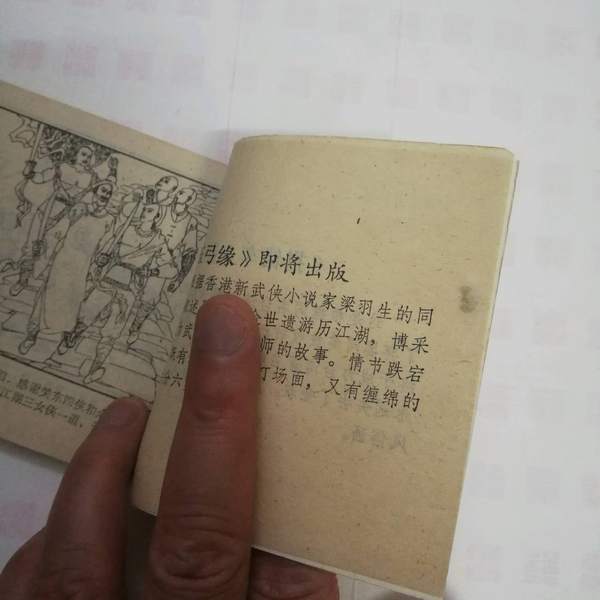 弓缘》即将出版
香港新武侠小说家梁羽生的同
世遗游历江湖，博采
师的故事。情节跌宕
六 打场面，又有缠绵的
感谢关东四侠和
江南三女侠一道、